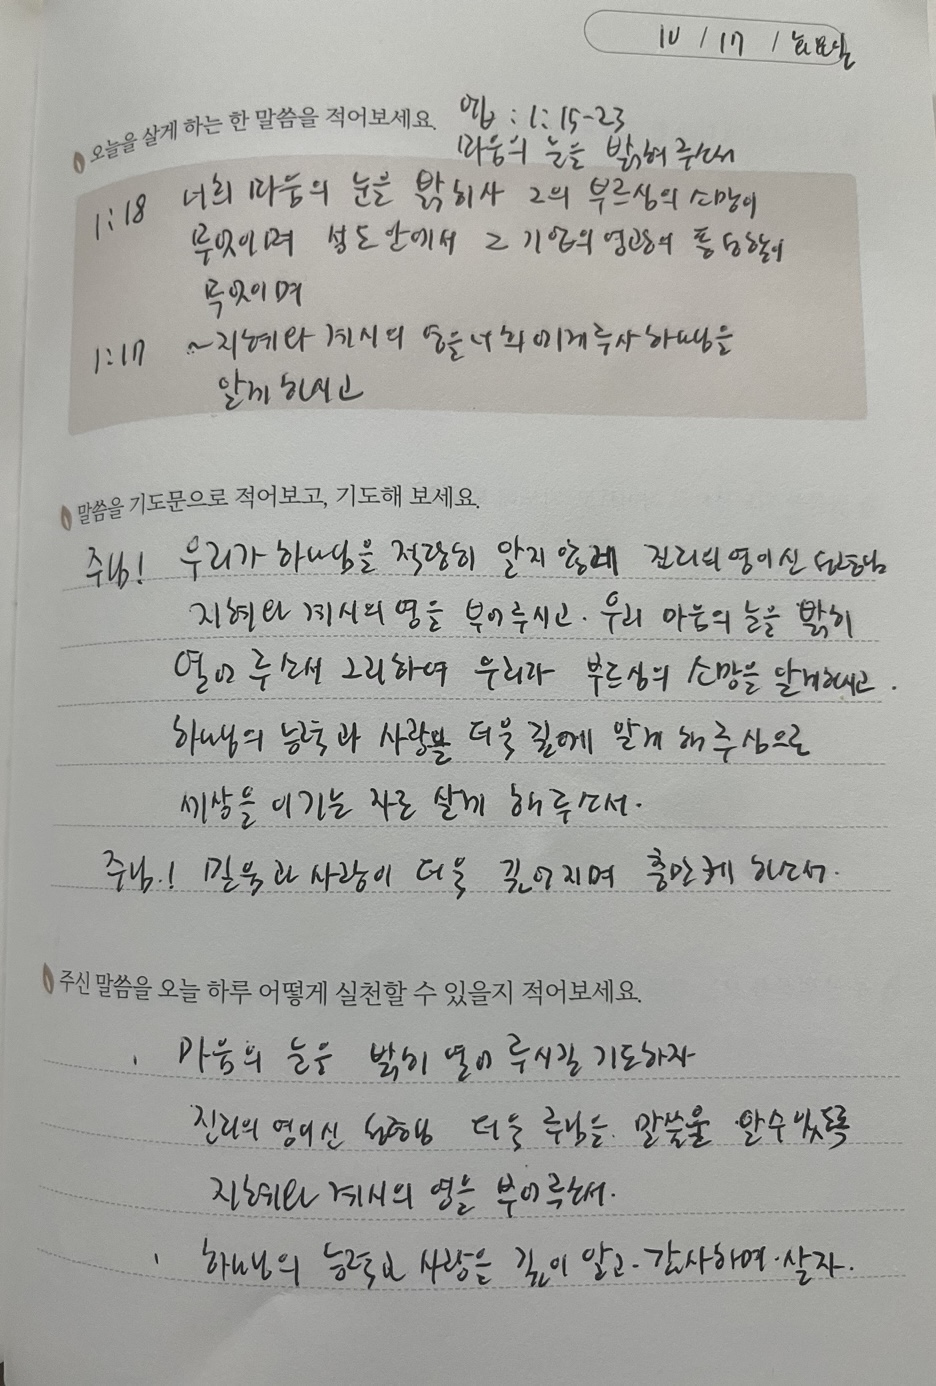 10 / 17 / 화요일
오늘을 살게 하는 한 말씀을 적어보세요.
엡 : 1 : 15-23
마음의 눈을 밝혀 주소서
1:18 너희 마음의 눈을 밝히사 그의 부르심의 소망이
무엇이며 성도 안에서 그 기업의 영광의 풍성함이
무엇이며
1:17 ~지혜와 계시의 영을 너희에게 주사 하나님을
알게 하시고
말씀을 기도문으로 적어보고, 기도해 보세요.
주님! 우리가 하나님을 적당히 알지 않게 진리의 영이신 성령님
지혜와 계시의 영을 부어 주시고. 우리 마음의 눈을 밝히
열어 주소서 그리하여 우리가 부르심의 소망을 알게하시고.
하나님의 능력과 사랑을 더욱 깊게 알게 해 주심으로
세상을 이기는 자로 살게 해 주소서.
주님.! 믿음과 사랑이 더욱 깊어지며 충만케 하소서.
주신 말씀을 오늘 하루 어떻게 실천할 수 있을지 적어보세요.
. 마음의 눈을 밝히 열어 주시길 기도하자
진리의 영이신 성령님 더욱 주님을. 말씀을 알 수 있도록
지혜와 계시의 영을 부어주소서.
. 하나님의 능력과 사랑을 깊이 알고. 감사하며. 살자.